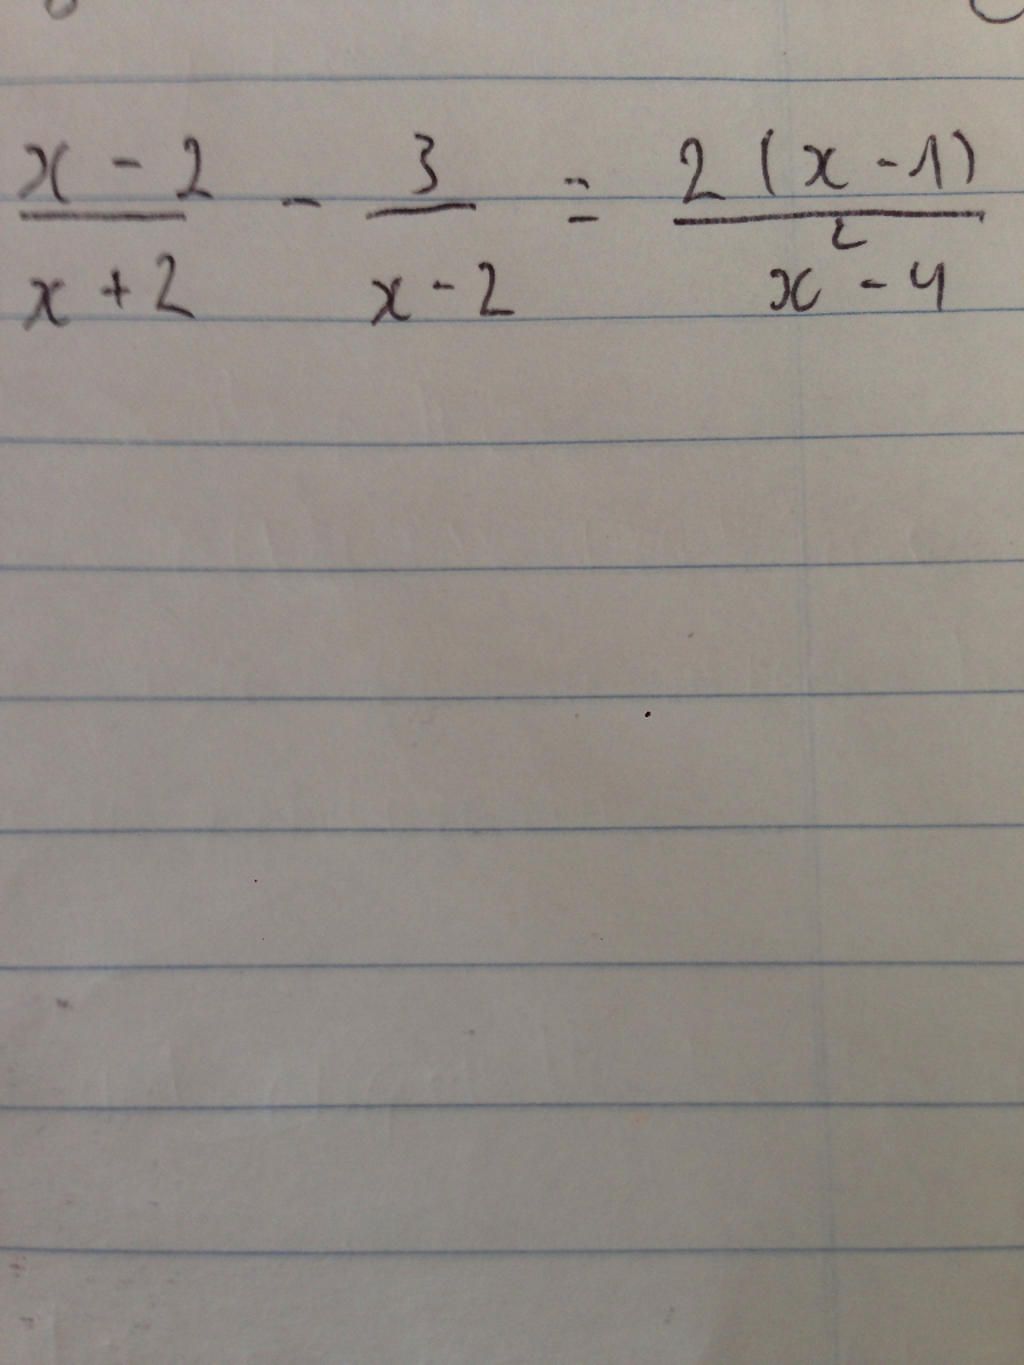 x - 2 / x + 2 - 3 / x - 2 = 2 (x - 1) / x² - 4